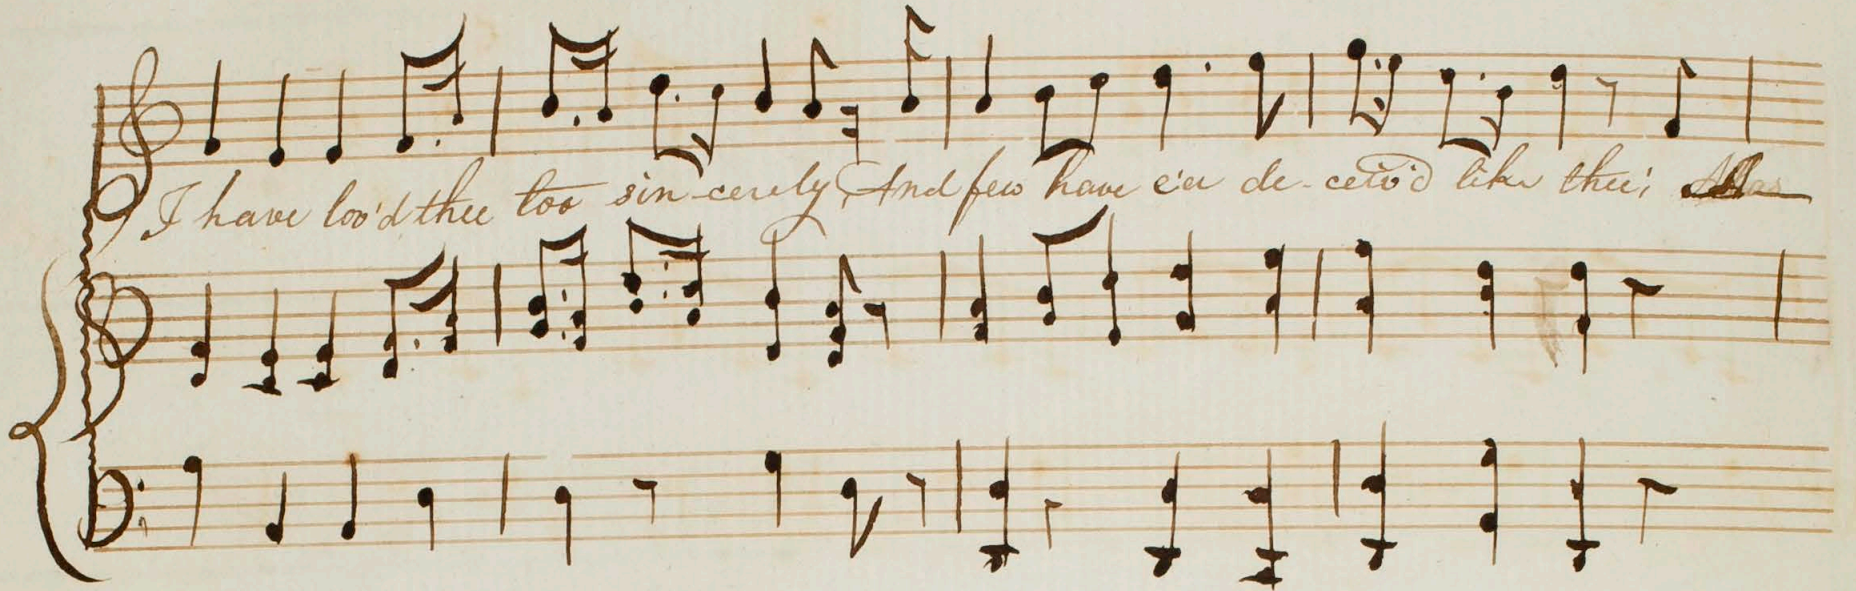 I have lov'd thee too sin-cerely And few have e'er de-ceiv'd like thee;